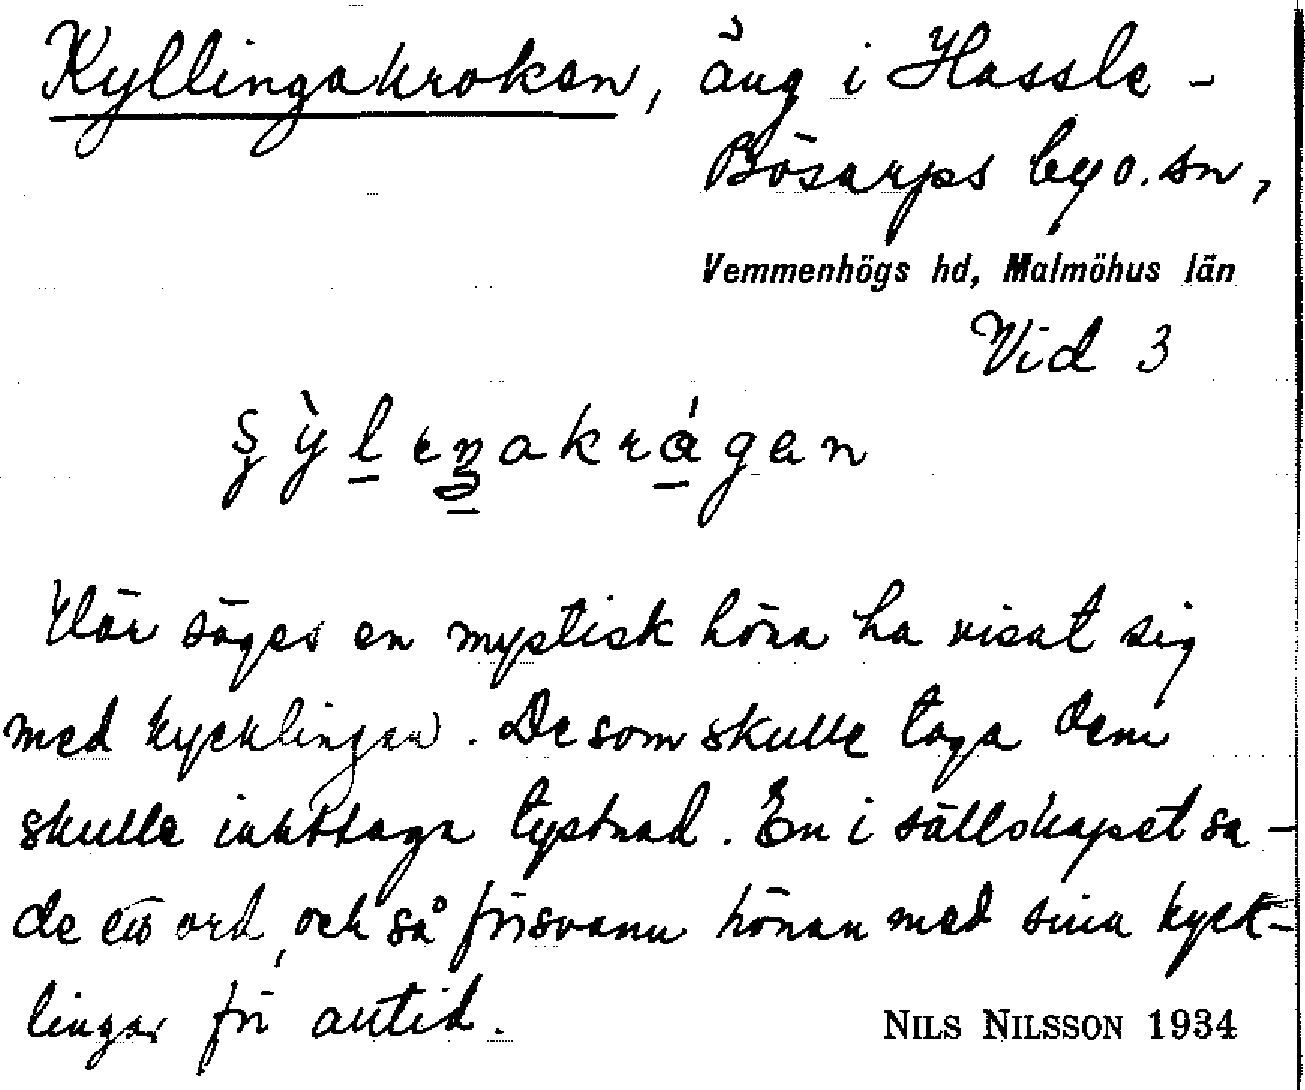 Kyllingakroken, äng i Hassle-
Bösarps by o. sn,
Vemmenhögs hd, Malmöhus län
Vid 3
Här säges en mystisk höna ha visat sig
med kycklingar. De som skulle taga dem
skulle iakttaga tystnad. En i sällskapet sa-
de ett ord, och så försvann hönan med sina kyck-
lingar för alltid.
NILS NILSSON 1934